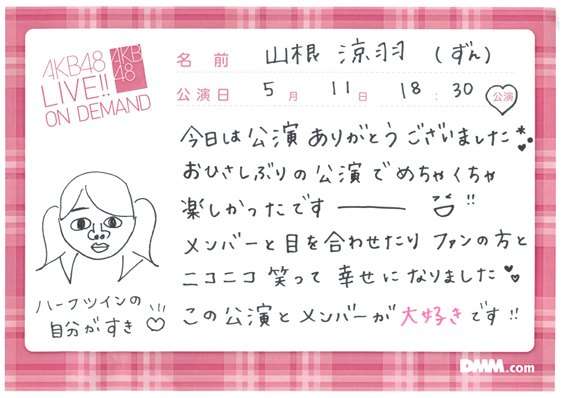 AKB48
LIVE!!
ON DEMAND
AKB
48
名前 山根 涼羽 (ずん)
公演日 5月 11日 18:30 公演
今日は公演ありがとうございました
おひさしぶりの公演でめちゃくちゃ
楽しかったです ―――!!
メンバーと目を合わせたり ファンの方と
ニコニコ笑って幸せになりました
この公演とメンバーが大好きです!!
ハーフツインの
自分がすき♡
DMM.com